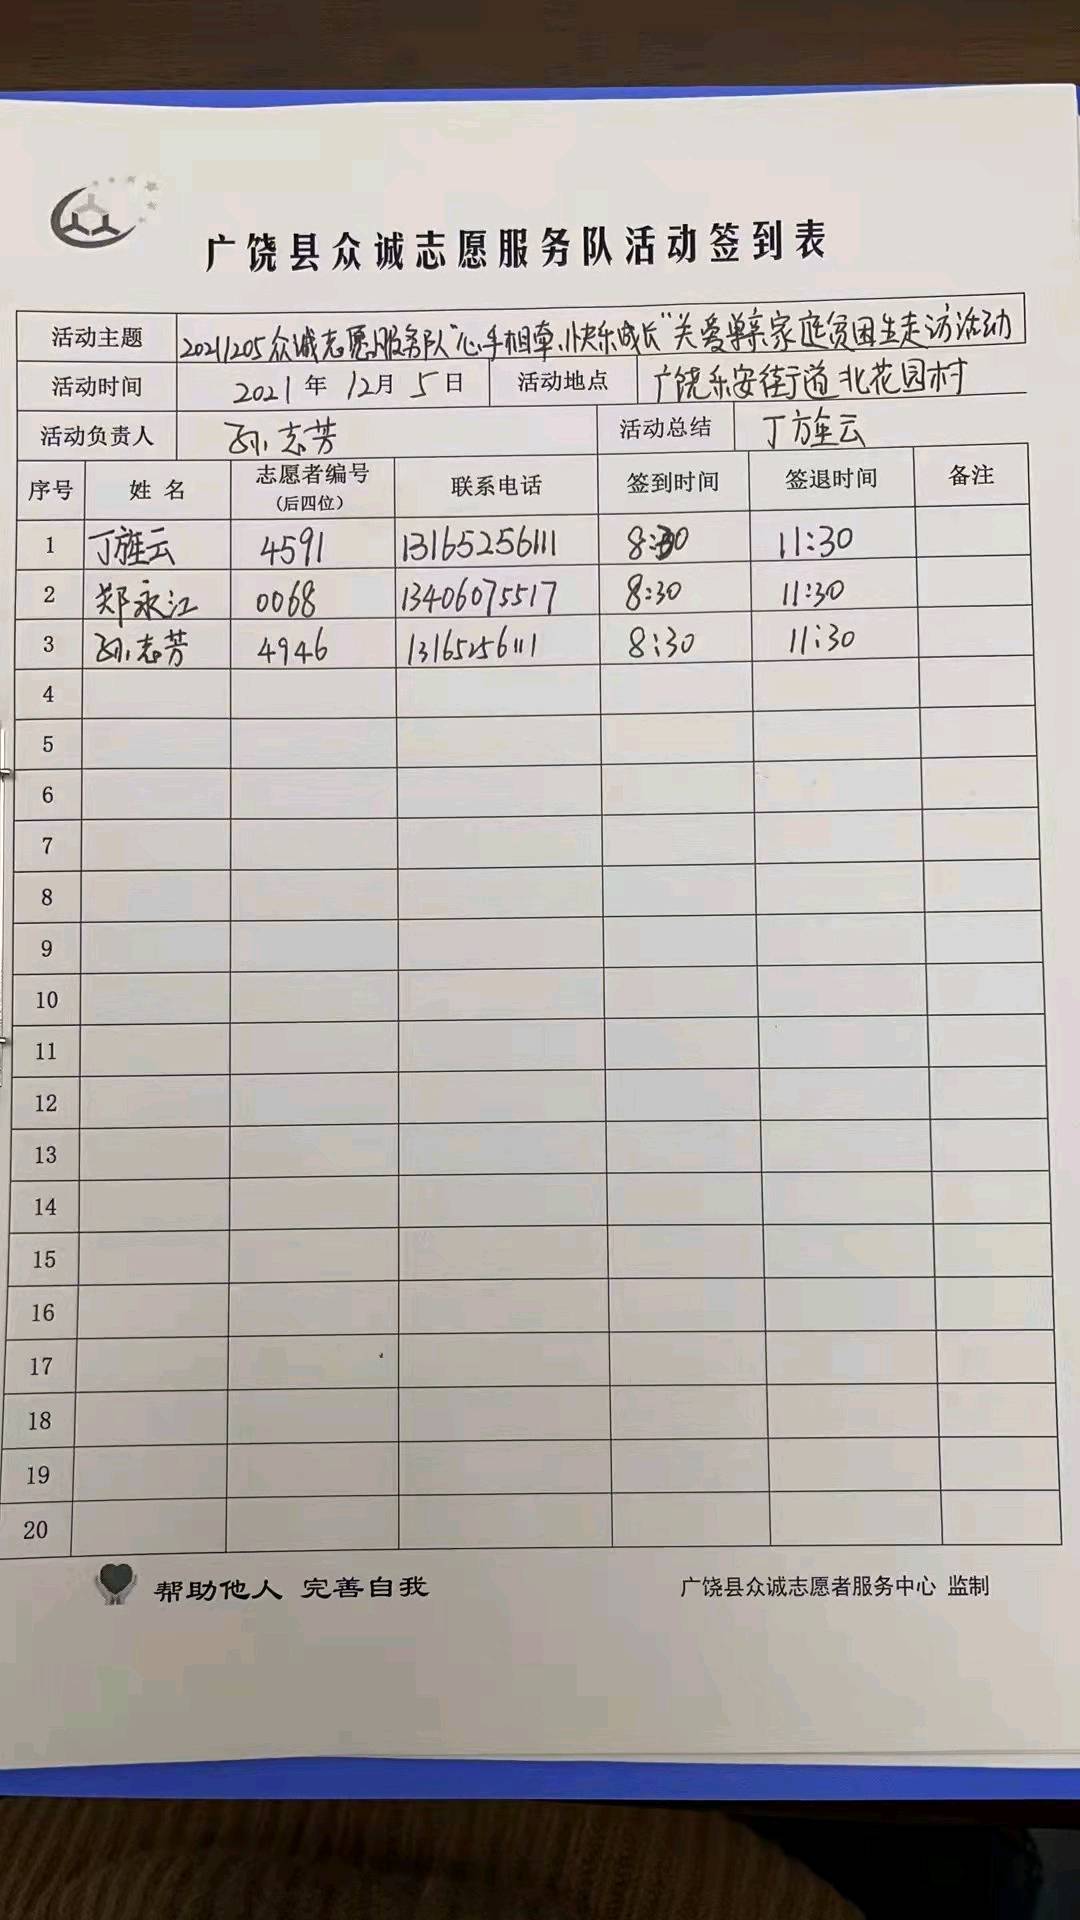 广饶县众诚志愿服务队活动签到表
活动主题 20211205众诚志愿服务队“心手相牵、快乐成长”关爱单亲家庭贫困生走访活动
活动时间 2021年12月5日 活动地点 广饶乐安街道北花园村
活动负责人 孙志芳 活动总结 丁旌云
序号 姓名 志愿者编号（后四位） 联系电话 签到时间 签退时间 备注
1 丁旌云 4591 13165256111 8:30 11:30
2 郑永江 0068 13406075517 8:30 11:30
3 孙志芳 4946 13165256111 8:30 11:30
4
5
6
7
8
9
10
11
12
13
14
15
16
17
18
19
20
帮助他人 完善自我 广饶县众诚志愿者服务中心 监制